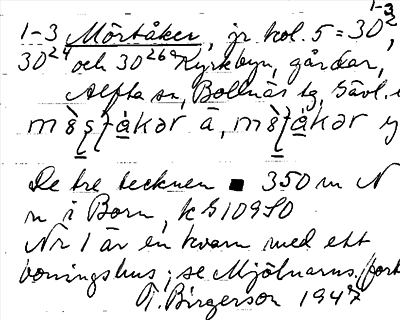 1-3 Mörtåker, jr kol. 5 = 30²,
30²⁴ och 30²⁶ᵃ Kyrkbyn, gårdar,
Alfta sn, Bollnäs tg, Gävl.
De tre tecknen ■ 350 m N
n i Born, k G109 SO
Nr 1 är en kvarn med ett
boningshus; se Mjölnarns. (fort
T. Birgerson 1947